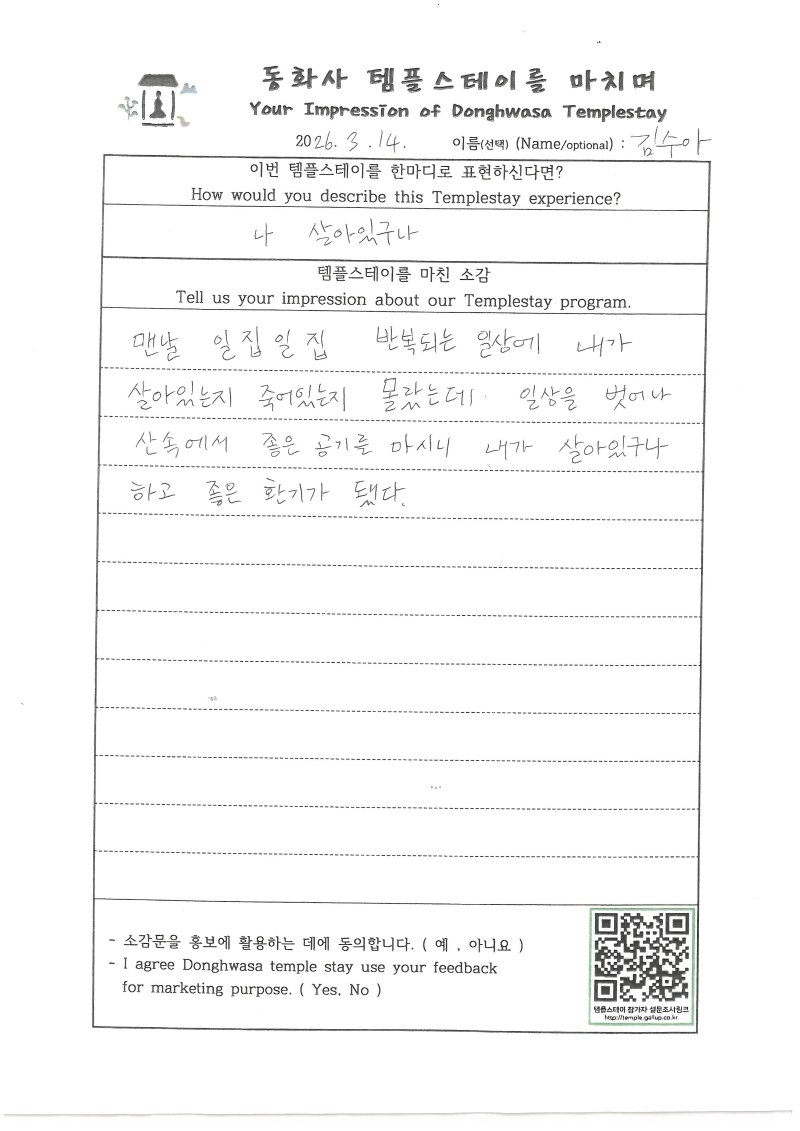 동화사 템플스테이를 마치며
Your Impression of Donghwasa Templestay
2026. 3. 14. 이름(선택) (Name/optional) : 김수아
이번 템플스테이를 한마디로 표현하신다면?
How would you describe this Templestay experience?
나 살아있구나
템플스테이를 마친 소감
Tell us your impression about our Templestay program.
맨날 일집일집 반복되는 일상에 내가
살아있는지 죽어있는지 몰랐는데 일상을 벗어나
산속에서 좋은 공기를 마시니 내가 살아있구나
하고 좋은 환기가 됐다.
- 소감문을 홍보에 활용하는 데에 동의합니다. ( 예 , 아니요 )
- I agree Donghwasa temple stay use your feedback
for marketing purpose. ( Yes, No )
템플스테이 참가자 설문조사링크
http://temple.gallup.co.kr